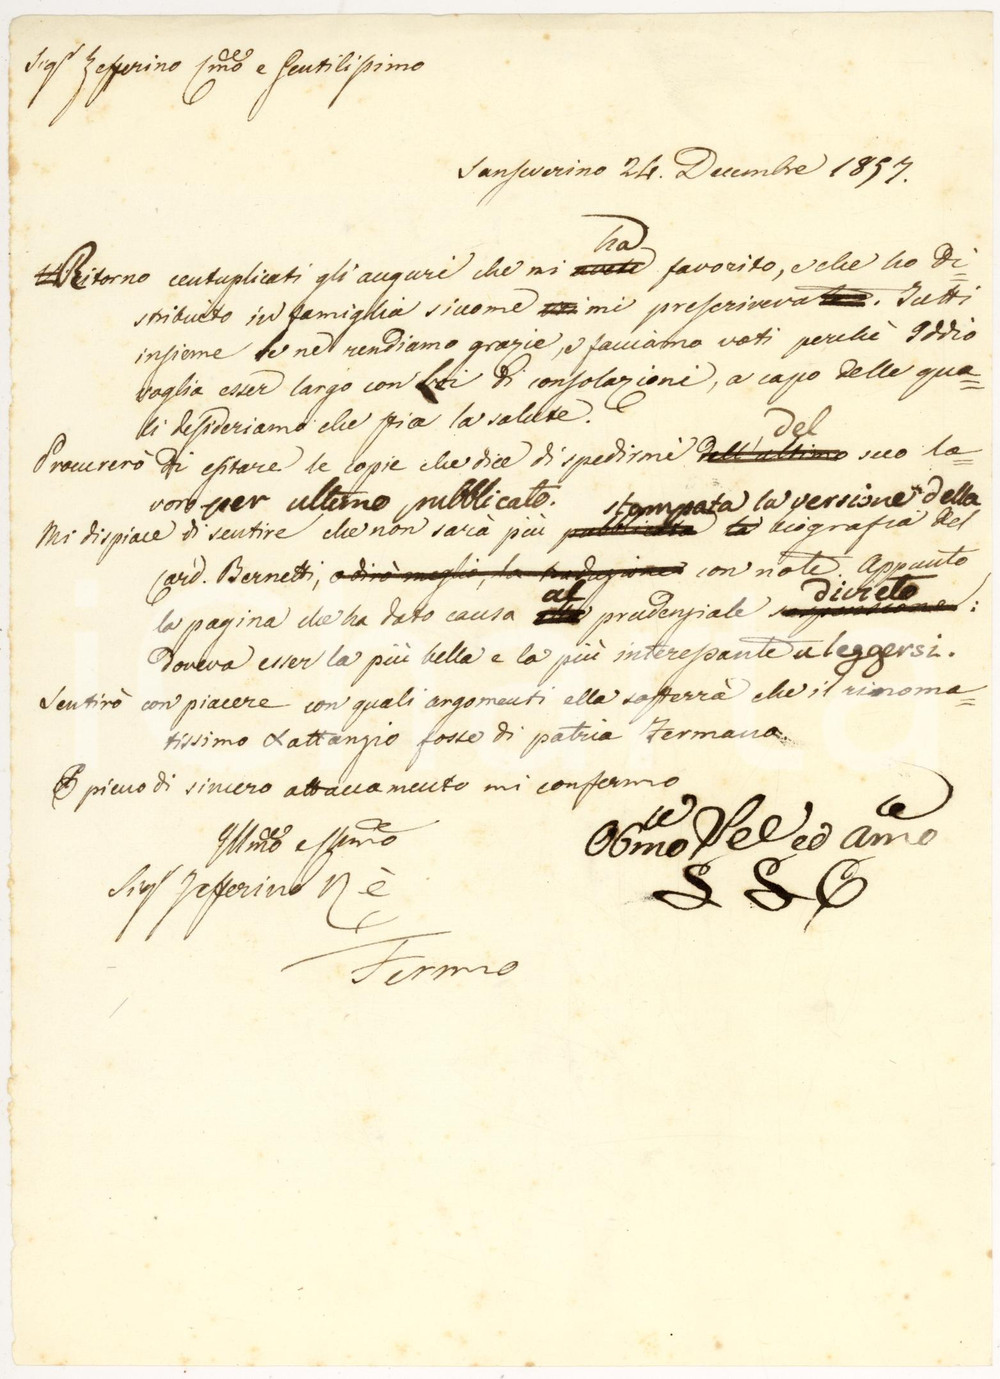 Sigr Zefferino Cmo e Gentilissimo
Sanseverino 24. Decembre 1857.
ha
Ritorno centuplicati gli auguri che mi favorito, e che ho di=
stribuito in famiglia siccome mi prescriveva. Tutti
insieme le ne rendiamo grazie, e facciamo voti perchè Iddio
voglia esser largo con Lei di consolazioni, a capo delle qua=
li desideriamo che sia la salute.
del
Procurerò di esitare le copie che dice di spedirmi dell'ultimo suo la=
voro per ultimo pubblicato.
stampata la versione della
Mi dispiace di sentire che non sarà più pubblicata la biografia del
Card. Bernetti, o dirò meglio, la traduzione con note. Appunto
al divieto
la pagina che ha dato causa prudenziale :
doveva esser la più bella e la più interessante a leggersi.
Sentirò con piacere con quali argomenti ella sosterrà che il rinoma=
tissimo Lattanzio fosse di patria Fermana.
E pieno di sincero attaccamento mi confermo
Illmo e Cmo
Obmo Vel ed amo
Sigr Zefferino Rè
S S C
Fermo